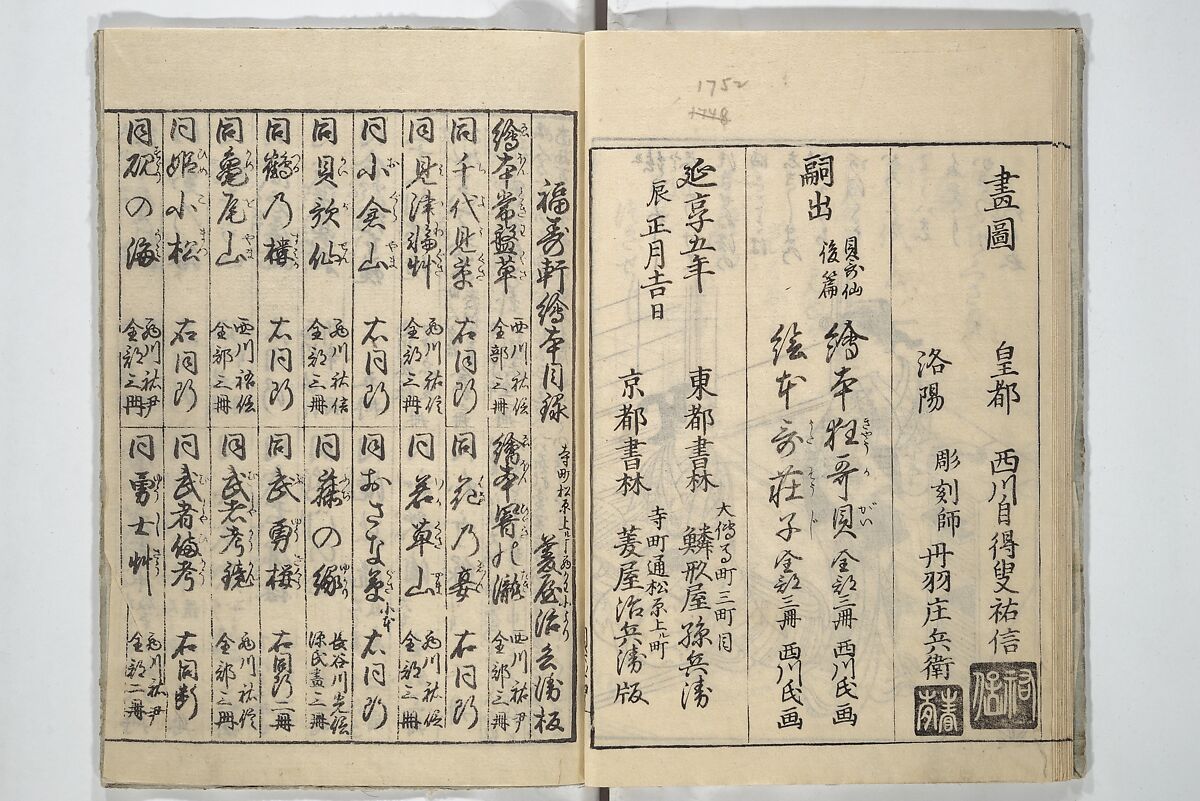 1752
1748
畫圖
皇都 西川自得叟祐信
祐信
洛陽 彫刻師 丹羽庄兵衛
嗣出 貝哥仙後篇 繪本狂哥貝 全部三冊 西川氏画
きやうかがい
絵本哥荘子 全部三冊 西川氏画
うたそうじ
延享五年 東都書林 大傳馬町三町目 鱗形屋孫兵衛
辰正月吉日 京都書林 寺町通松原上ル町 菱屋治兵衛版
福壽軒繪本目録 寺町松原上ル丁 菱屋治兵衛板
繪本常盤草 西川祐信 全部三冊
繪本筧の瀧 西川祐尹 全部三冊
同千代見草 右同断
同花乃宴 右同断
同見津和艸 西川祐信 全部三冊
同若草山 西川祐信 全部三冊
同小倉山 右同断
同おさな草 小本 右同断
同貝歌仙 西川祐信 全部三冊
同藤の縁 長谷川光信 源氏畫三冊
同鶴乃棲 右同断
同武勇梅 右同断二冊
同亀尾山 西川祐信 全部三冊
同武者考鏡 西川祐信 全部三冊
同姫小松 右同断
同武者備考 右同断
同硯の海 西川祐尹 全部三冊
同勇士艸 西川祐尹 全部二冊